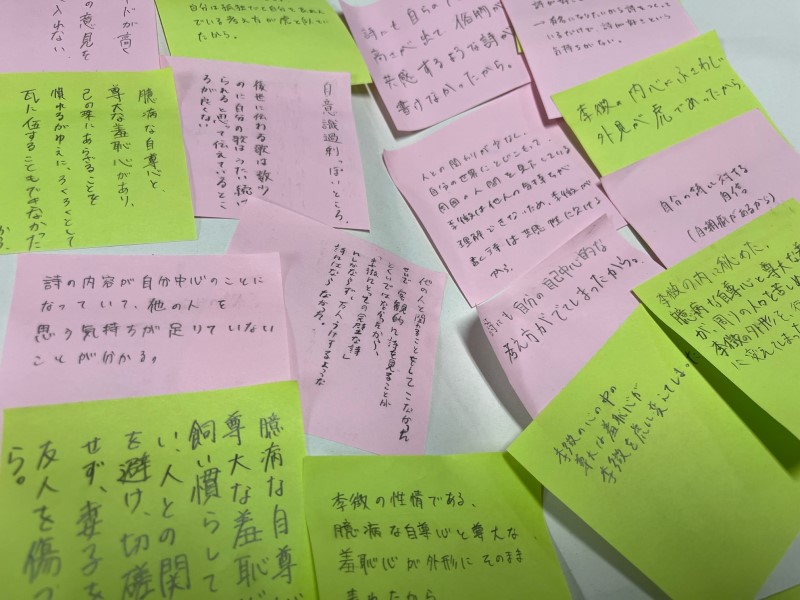 ドが高く
の意見を
入れない
自分は孤独だと自分で
でいる考え方が虎と
たから。
詩にも自分の
高さが出て
共感するような詩が
書けなかったから。
李徴の内心がふさわしい
外見が虎であったから
臆病な自尊心と、
尊大な羞恥心があり、
己の珠にあらざることを
惧れるがゆえに、ろくろくとして
瓦に伍することもできなかった
から
自意識過剰、ぽいところ。
後世に伝わる歌は数少
のに自分の歌は
られると思って伝えているとこ
ろが良くない
人との関わりが少なく、
自分の世界にとじこもって、
周囲の人間を見下している
李徴は他人の気持ちが
理解できないため、李徴が
書く詩は共感性に欠ける
から。
自分の詩に対する
自信。
(自嘲癖があるから)
詩の内容が自分中心のことに
なっていて、他の人を
思う気持ちが足りていない
ことが分かる。
他の人と関わることをして こなかった
せいで 客観的に詩を見ることが
万人うけするような
詩にはならなかった
詩にも自分の自己中心的な
考え方がでてしまったから。
李徴の内に秘めた、
臆病な自尊心と尊大な
が、周りの人々を苦し
李徴の外形を、
に変えてしまっ
李徴の心の中の
尊大な羞恥心が
李徴を虎に変えてしま
臆病な自尊
尊大な羞恥
飼い慣らして
い、人との関
を避け、切磋
せず、妻子を
友人を傷つ
ら。
李徴の性情である、
臆病な自尊心と尊大な
羞恥心が外形にそのまま
表れたから